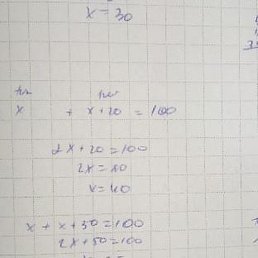 x = 30
x + x+20 = 100
2x+20=100
2x=80
x=40
x + x+50=100
2x+50=100